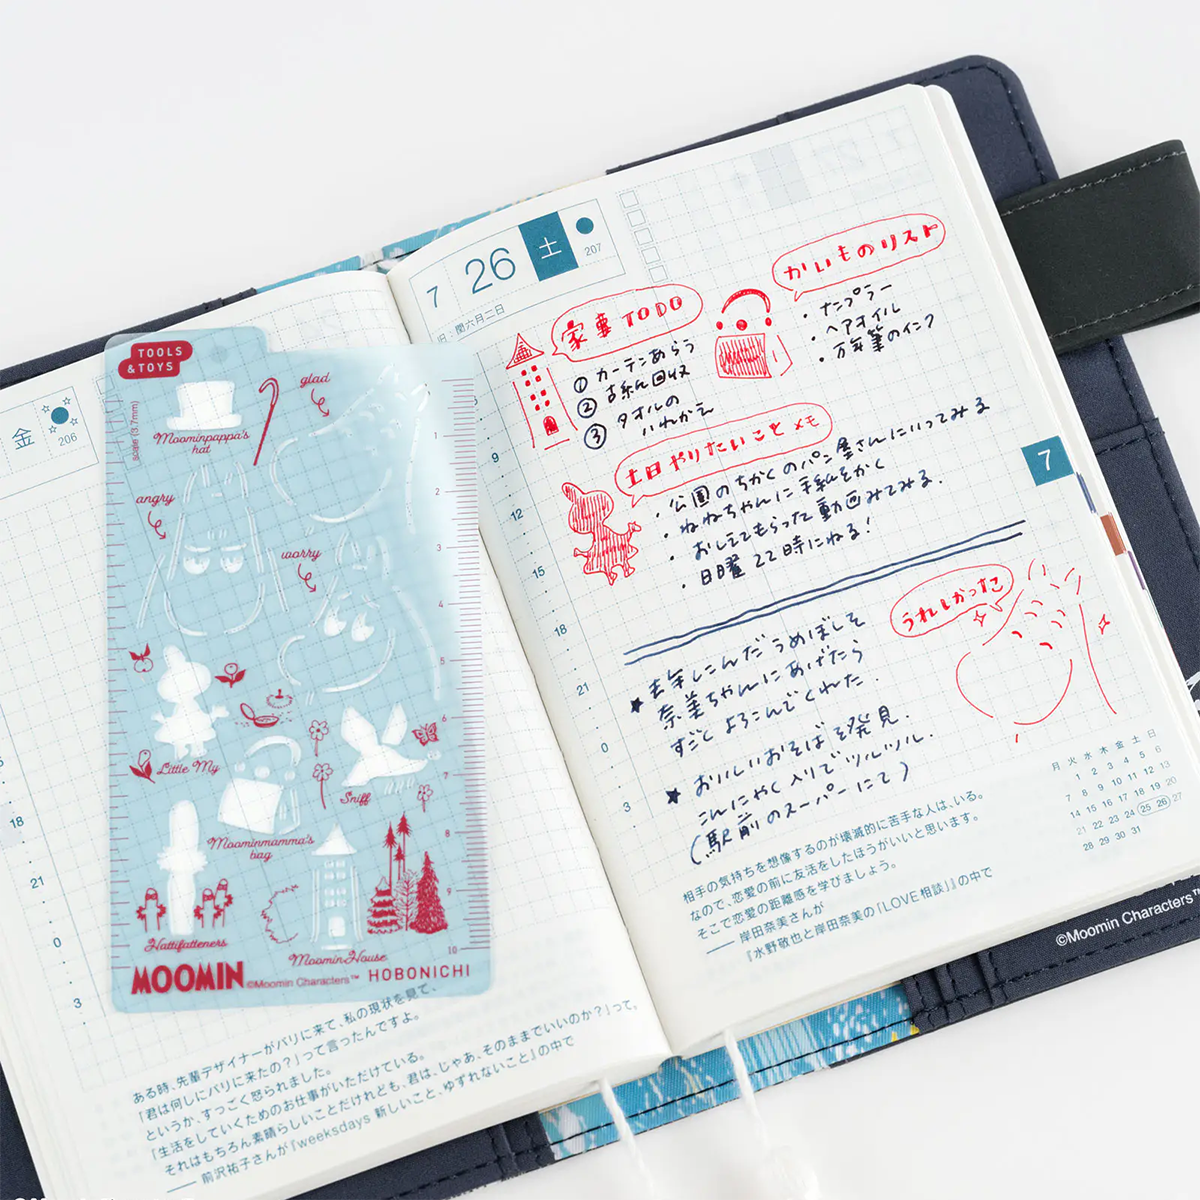 金
206
18
21
0
3
TOOLS
& TOYS
scale (3.7mm)
glad
Moominpappa's
hat
angry
worry
Little My
Sniff
Moominmamma's
bag
Hattifatteners
MoominHouse
MOOMIN
©Moomin Characters™
HOBONICHI
1
2
3
4
5
6
7
8
9
10
ある時、先輩デザイナーがパリに来て、私の現状を見て、
「君は何しにパリに来たの?」って言ったんですよ。
というか、すっごく怒られました。
「生活をしていくためのお仕事がいただけている。
それはもちろん素晴らしいことだけれども、君は、じゃあ、そのままでいいのか?」って。
―― 前沢祐子さんが『weeksdays 新しいこと、ゆずれないこと』の中で
7
26
土
207
旧・閏六月二日
家事 TODO
① カーテンあらう
② 古紙回収
③ タオルの
いれかえ
かいものリスト
・ナンプラー
・ヘアオイル
・万年筆のインク
土日やりたいことメモ
・公園のちかくのパン屋さんにいってみる
・ねねちゃんに手紙をかく
・おしえてもらった動画みてみる.
・日曜 22時にねる!
9
12
15
18
21
0
3
7
★去年しこんだうめぼしを
奈美ちゃんにあげたら
すごくよろこんでくれた.
うれしかったこ
★おいしいおそばを発見.
こんにゃく入りでツルツル.
(駅前のスーパーにて)
月 火 水 木 金 土 日
1 2 3 4 5 6
7 8 9 10 11 12 13
14 15 16 17 18 19 20
21 22 23 24 25 26 27
28 29 30 31
相手の気持ちを想像するのが壊滅的に苦手な人は、いる。
なので、恋愛の前に友活をしたほうがいいと思います。
そこで恋愛の距離感を学びましょう。
―― 岸田奈美さんが
『水野敬也と岸田奈美の「LOVE相談」』の中で
©Moomin Characters™